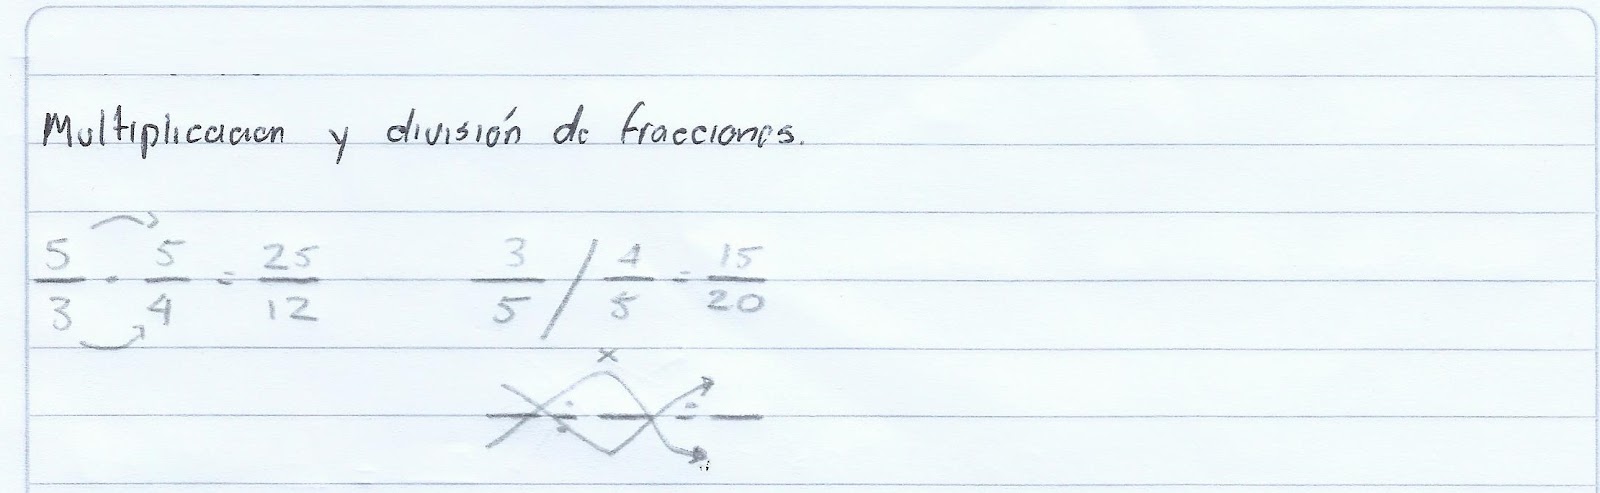 Multiplicacion y división de fracciones.
5/3 · 5/4 = 25/12    3/5 / 4/5 = 15/20
x
— ÷ — = —